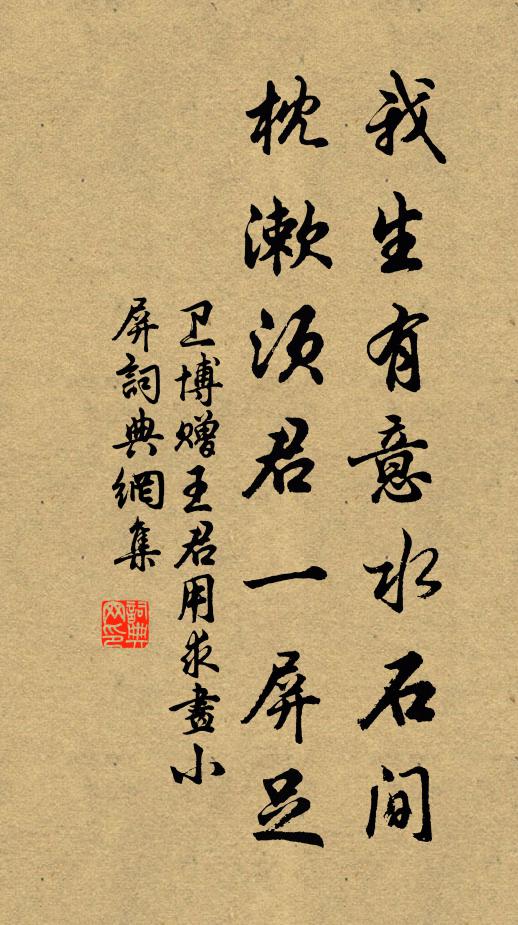 我生有意水石间
枕漱须君一屏足
卫博赠王君用求畫小
屏詞典網集
詞典网印